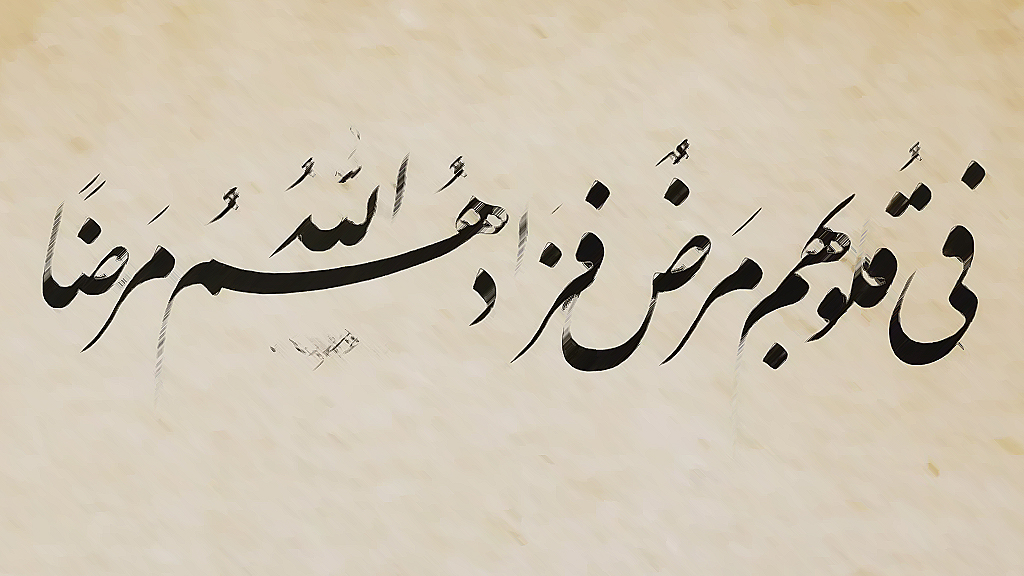 فی قُلُوبِهِم مَرَضٌ فَزَادَهُمُ اللّٰهُ مَرَضًا